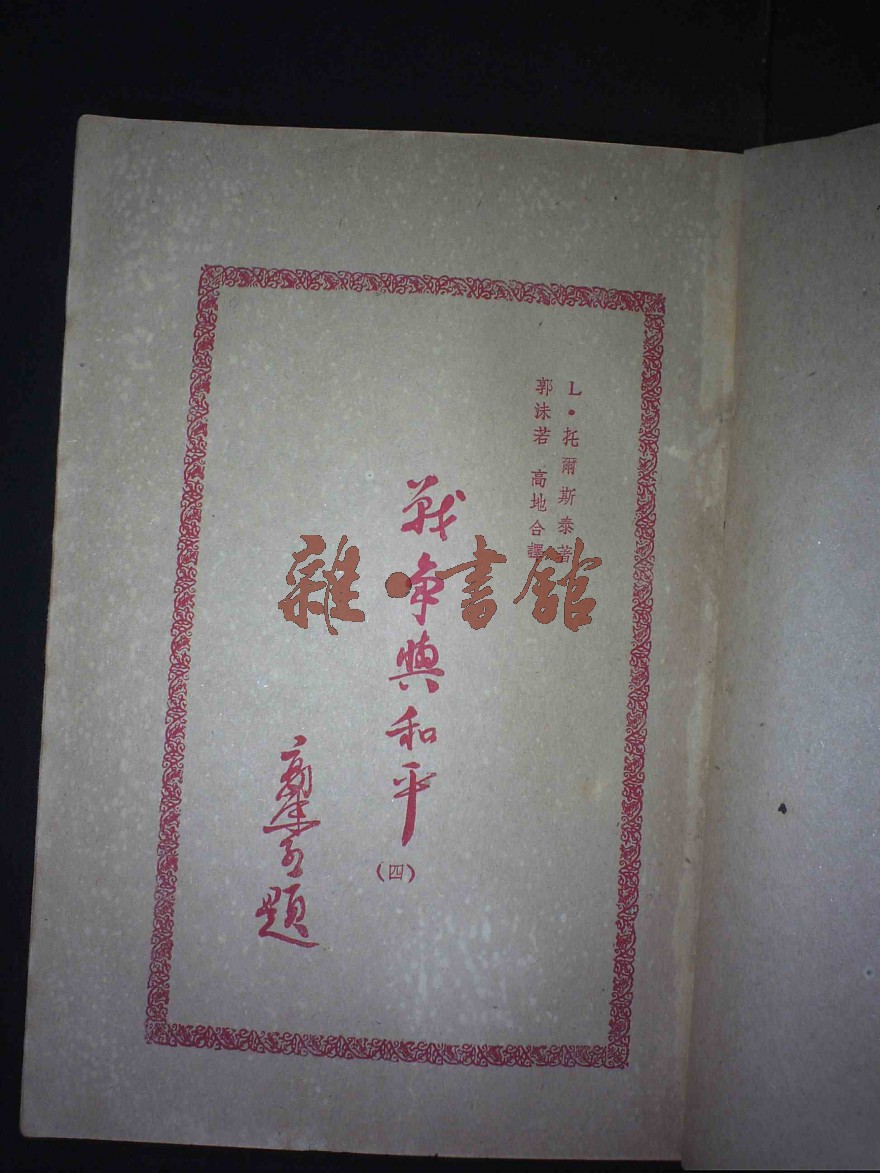 L•托爾斯泰著
郭沫若 高地合譯
戰爭與和平
(四)
題
雜•書館